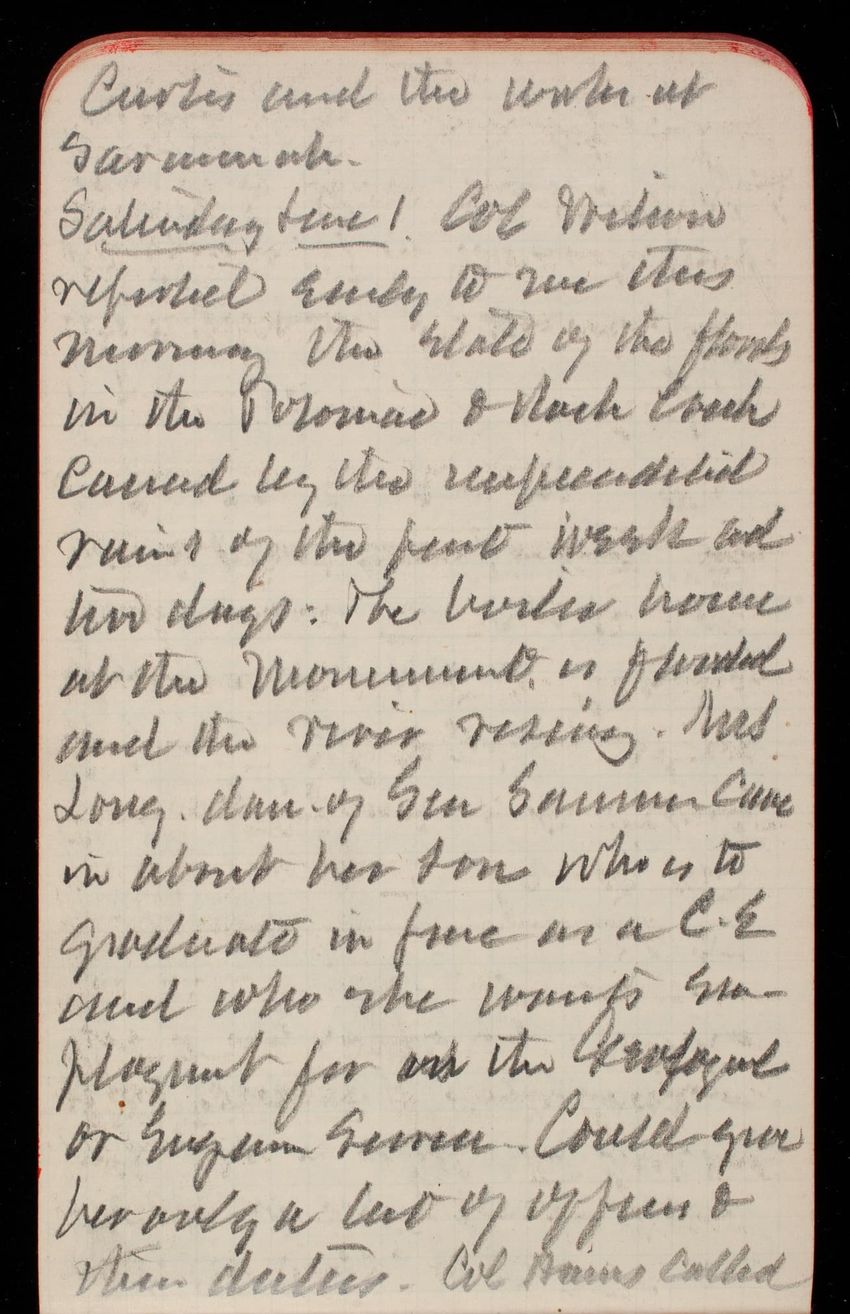 Curtis and the work at
Savannah.
Saturday June 1. Col Wilson
reported early to me this
morning the state of the floods
in the Potomac & Rock Creek
Caused by the unprecedented
rains of the past week and
two days: The boiler house
at the Monument is flooded
and the river rising. Mrs
Long. dau. of Gen Sumner Came
in about her son who is to
graduate in June as a C.E
and who she wants em-
ployment for on the Geological
or Engineer Survey. Could give
her only a list of officers &
their duties. Col Hains Called